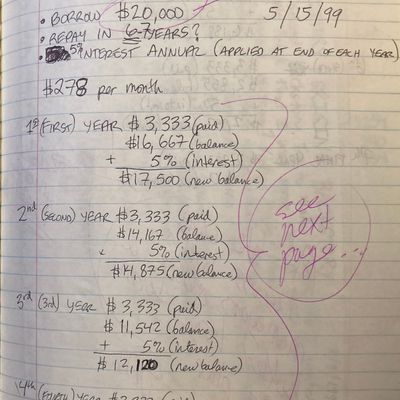 5/15/99
• BORROW $20,000
• REPAY IN 6-7 YEARS?
• 5% INTEREST ANNUAL (APPLIED AT END OF EACH YEAR)
$278 per month
1st (FIRST) YEAR $3,333 (paid)
$16,667 (balance)
+ 5% (interest)
$17,500 (new balance)
2nd (SECOND) YEAR $3,333 (paid)
$14,167 (balance)
5% (interest)
$14,875 (new balance)
see
next
page...
3rd (3rd) YEAR $3,333 (paid)
$11,542 (balance)
+ 5% (interest)
$12,120 (new balance)
4th (FOURTH) YEAR $3,333 (paid)